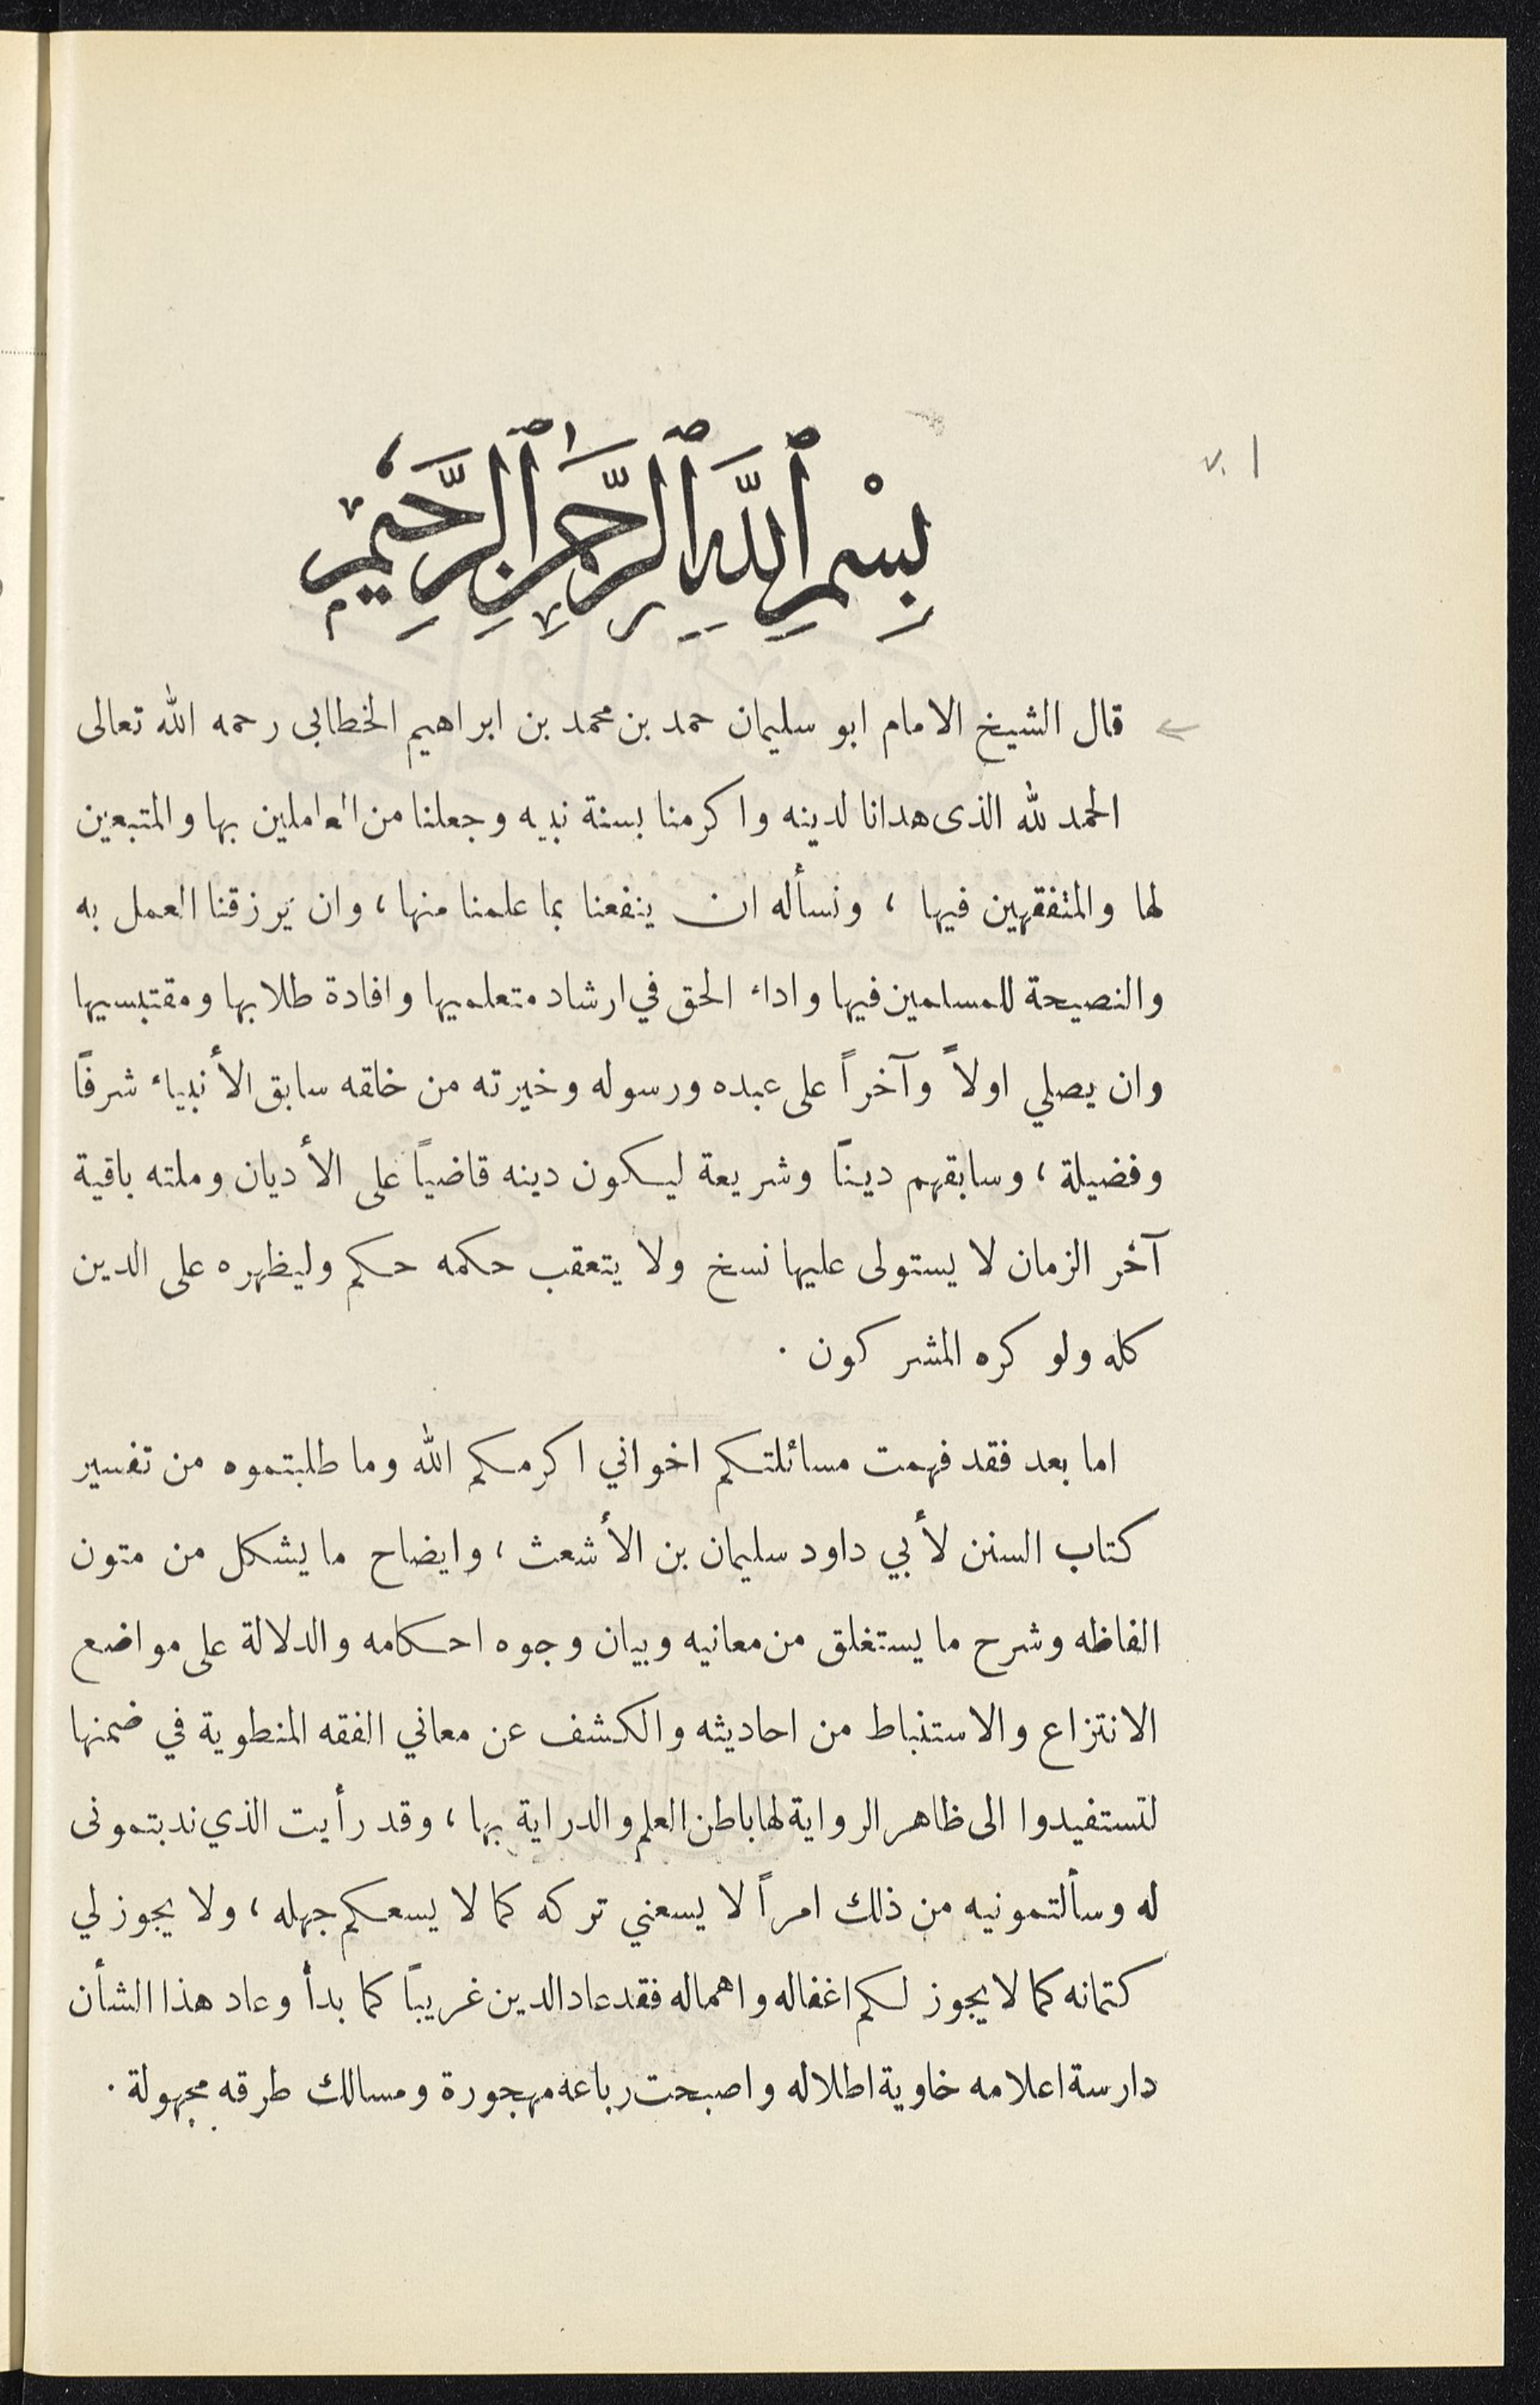 بِسْمِ ٱللَّهِ ٱلرَّحْمَٰنِ ٱلرَّحِيمِ
v. 1
قال الشيخ الامام ابو سليمان حمد بن محمد بن ابراهيم الخطابى رحمه الله تعالى
الحمد لله الذى هدانا لدينه واكرمنا بسنة نبيه وجعلنا من العاملين بها والمتبعين
لها والمتفقهين فيها ، ونسأله ان ينفعنا بما علمنا منها ، وان يَرزقنا العمل به
والنصيحة للمسلمين فيها واداء الحق في ارشاد متعلميها وافادة طلابها ومقتبسيها
وان يصلي اولاً وآخراً على عبده ورسوله وخيرته من خلقه سابق الأنبياء شرفاً
وفضيلة ، وسابقهم ديناً وشريعة ليكون دينه قاضياً على الأديان وملته باقية
آخر الزمان لا يستولى عليها نسخ ولا يتعقب حكمه حكم وليظهره على الدين
كله ولو كره المشركون .
اما بعد فقد فهمت مسائلتكم اخواني اكرمكم الله وما طلبتموه من تفسير
كتاب السنن لأبي داود سليمان بن الأشعث ، وايضاح ما يشكل من متون
الفاظه وشرح ما يستغلق من معانيه وبيان وجوه احكامه والدلالة على مواضع
الانتزاع والاستنباط من احاديثه والكشف عن معاني الفقه المنطوية في ضمنها
لتستفيدوا الى ظاهر الرواية لها باطن العلم والدراية بها ، وقد رأيت الذي ندبتمونى
له وسألتمونيه من ذلك امراً لا يسعني تركه كما لا يسعكم جهله ، ولا يجوز لي
كتمانه كما لا يجوز لكم اغفاله واهماله فقد عاد الدين غريباً كما بدأ وعاد هذا الشأن
دارسة اعلامه خاوية اطلاله واصبحت رباعه مهجورة ومسالك طرقه مجهولة .